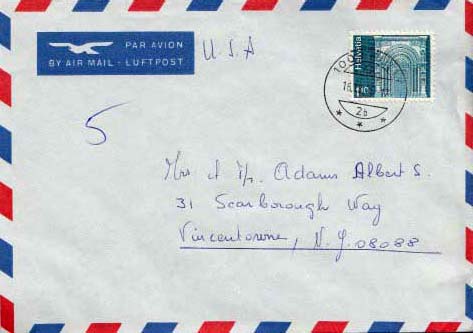 PAR AVION
BY AIR MAIL - LUFTPOST
U.S.A
Helvetia
2b
5
Mrs & Mr. Adams Albert S.
31 Scarborough Way
Vincentowne, N.J. 08088